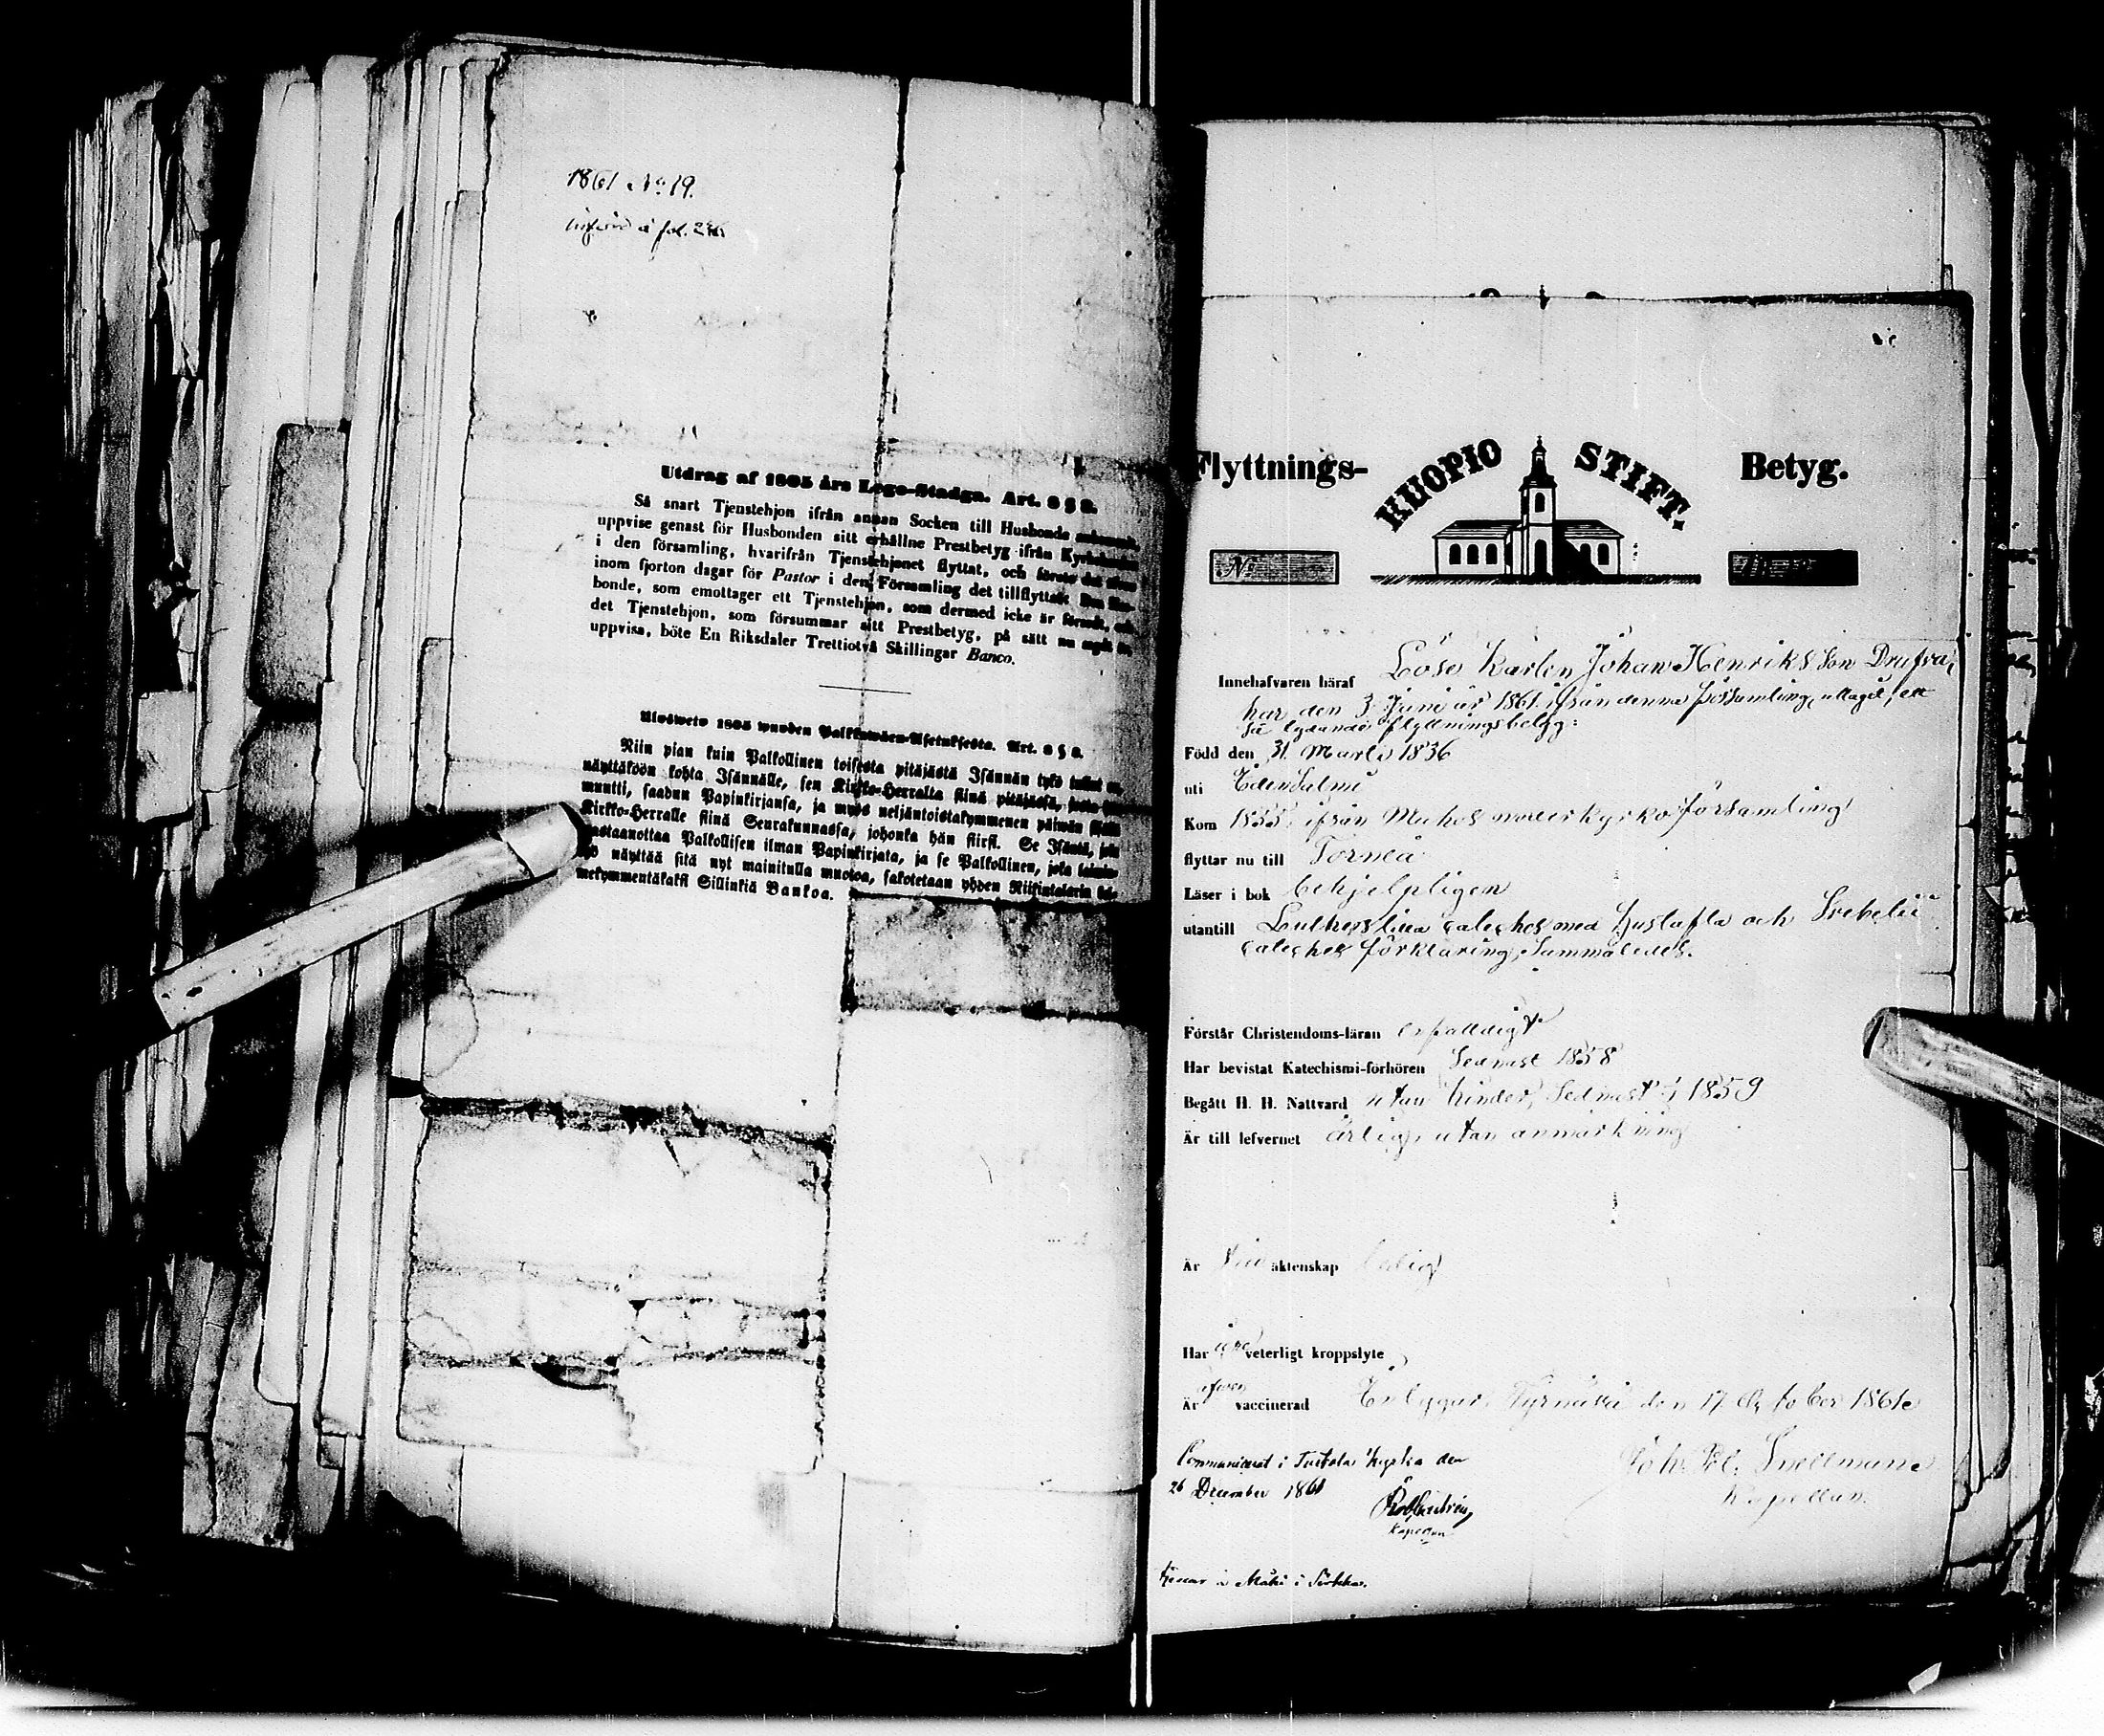 1861 No. 19.
införd å fol.
Utdrag af 1805 års Lego-Stadga. Art. 8 § 2.
Så snart Tjenstehjon ifrån annan Socken till Husbonde
uppvise genast för Husbonden sitt erhållne Prestbetyg ifrån
i den församling, hvarifrån Tjenstehjonet flyttat, och
inom fjorton dagar för Pastor i den Församling det tillflyttat.
bonde, som emottager ett Tjenstehjon, som dermed icke är försedt,
det Tjenstehjon, som försummar sitt Prestbetyg, på sätt nu
uppvisa, böte En Riksdaler Trettiotvå Skillingar Banco.
1805 wuoden Palkkawäen-Asetuksesta. Art. 8 § 2.
Niin pian kuin Palkollinen toisesta pitäjästä Isännän tykö tullut on,
näyttäköön kohta Isännälle, sen Kirkko-Herralta siinä pitäjässä,
muutti, saadun Papinkirjansa, ja myös neljäntoistakymmenen päiwän
Kirkko-Herralle siinä Seurakunnassa, johonka hän siirsi. Se Isäntä, joka
wastaanottaa Palkollisen ilman Papinkirjata, ja se Palkollinen, joka
näyttää sitä nyt mainitulla muotoa, sakotetaan yhden Riikintalarin
mekymmentäkaksi Sillinkiä Bankoa.
Flyttnings- KUOPIO STIFT. Betyg.
No
Innehafvaren häraf Löse Karlen Johan Henriks Son
har den 3 Juni år 1861 ifrån denna församling uttagit, ett
så lydande flyttningsbetyg:
Född den 31 Marti 1836
uti Idensalmi
Kom 1855 ifrån Muhos moderkyrko församling
flyttar nu till Torneå
Läser i bok behjelpligen
utantill Luthers lilla cateches med hustafla och Svebelii
cateches förklaring, Sammaledes.
Förstår Christendoms-läran enfalldigt
Har bevistat Katechismi-förhören Sednast 1858
Begått H. H. Nattvard utan hinder, Sednast 1859
Är till lefvernet ärlig, utan anmärkning
Är till äktenskap ledig
Har veterligt kroppslyte
Är vaccinerad Betygar Tyrnävä den 17 October 1861
Joh. Snellman
Kapellan.
Communicerat i Kyrka den
26 December 1861
Kapellan
i